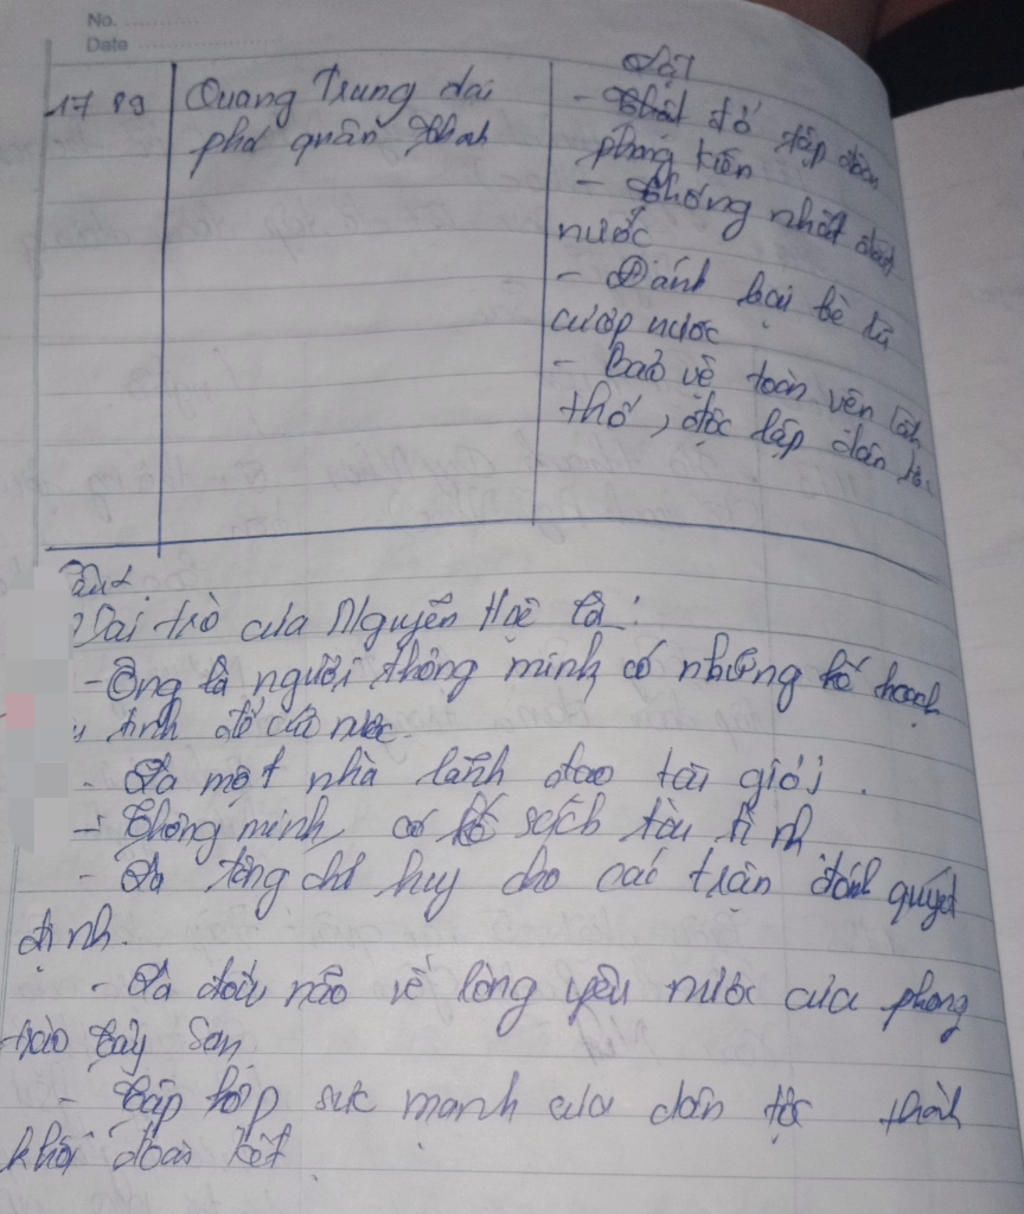 No. ............
Date ........................
Lật
1789 Quang Trung đại - đổ tập đoàn
phá quân Thanh phong kiến
- Thống nhất đất
nước
- Đánh bại bè lũ
cướp nước
- Bảo vệ toàn vẹn lãnh
thổ, độc lập dân tộc
Câu 2
Vai trò của Nguyễn Huệ là:
- Ông là người thông minh có những kế hoạch
tình để cứu nước.
- Là một nhà lãnh đạo tài giỏi.
- Thông minh, có kế sách tài tình
- Là tổng chỉ huy cho các trận đánh quyết
định.
- Là đầu não về lòng yêu nước của phong
trào Tây Sơn
- Tập hợp sức mạnh của dân tộc thành
khối đoàn kết